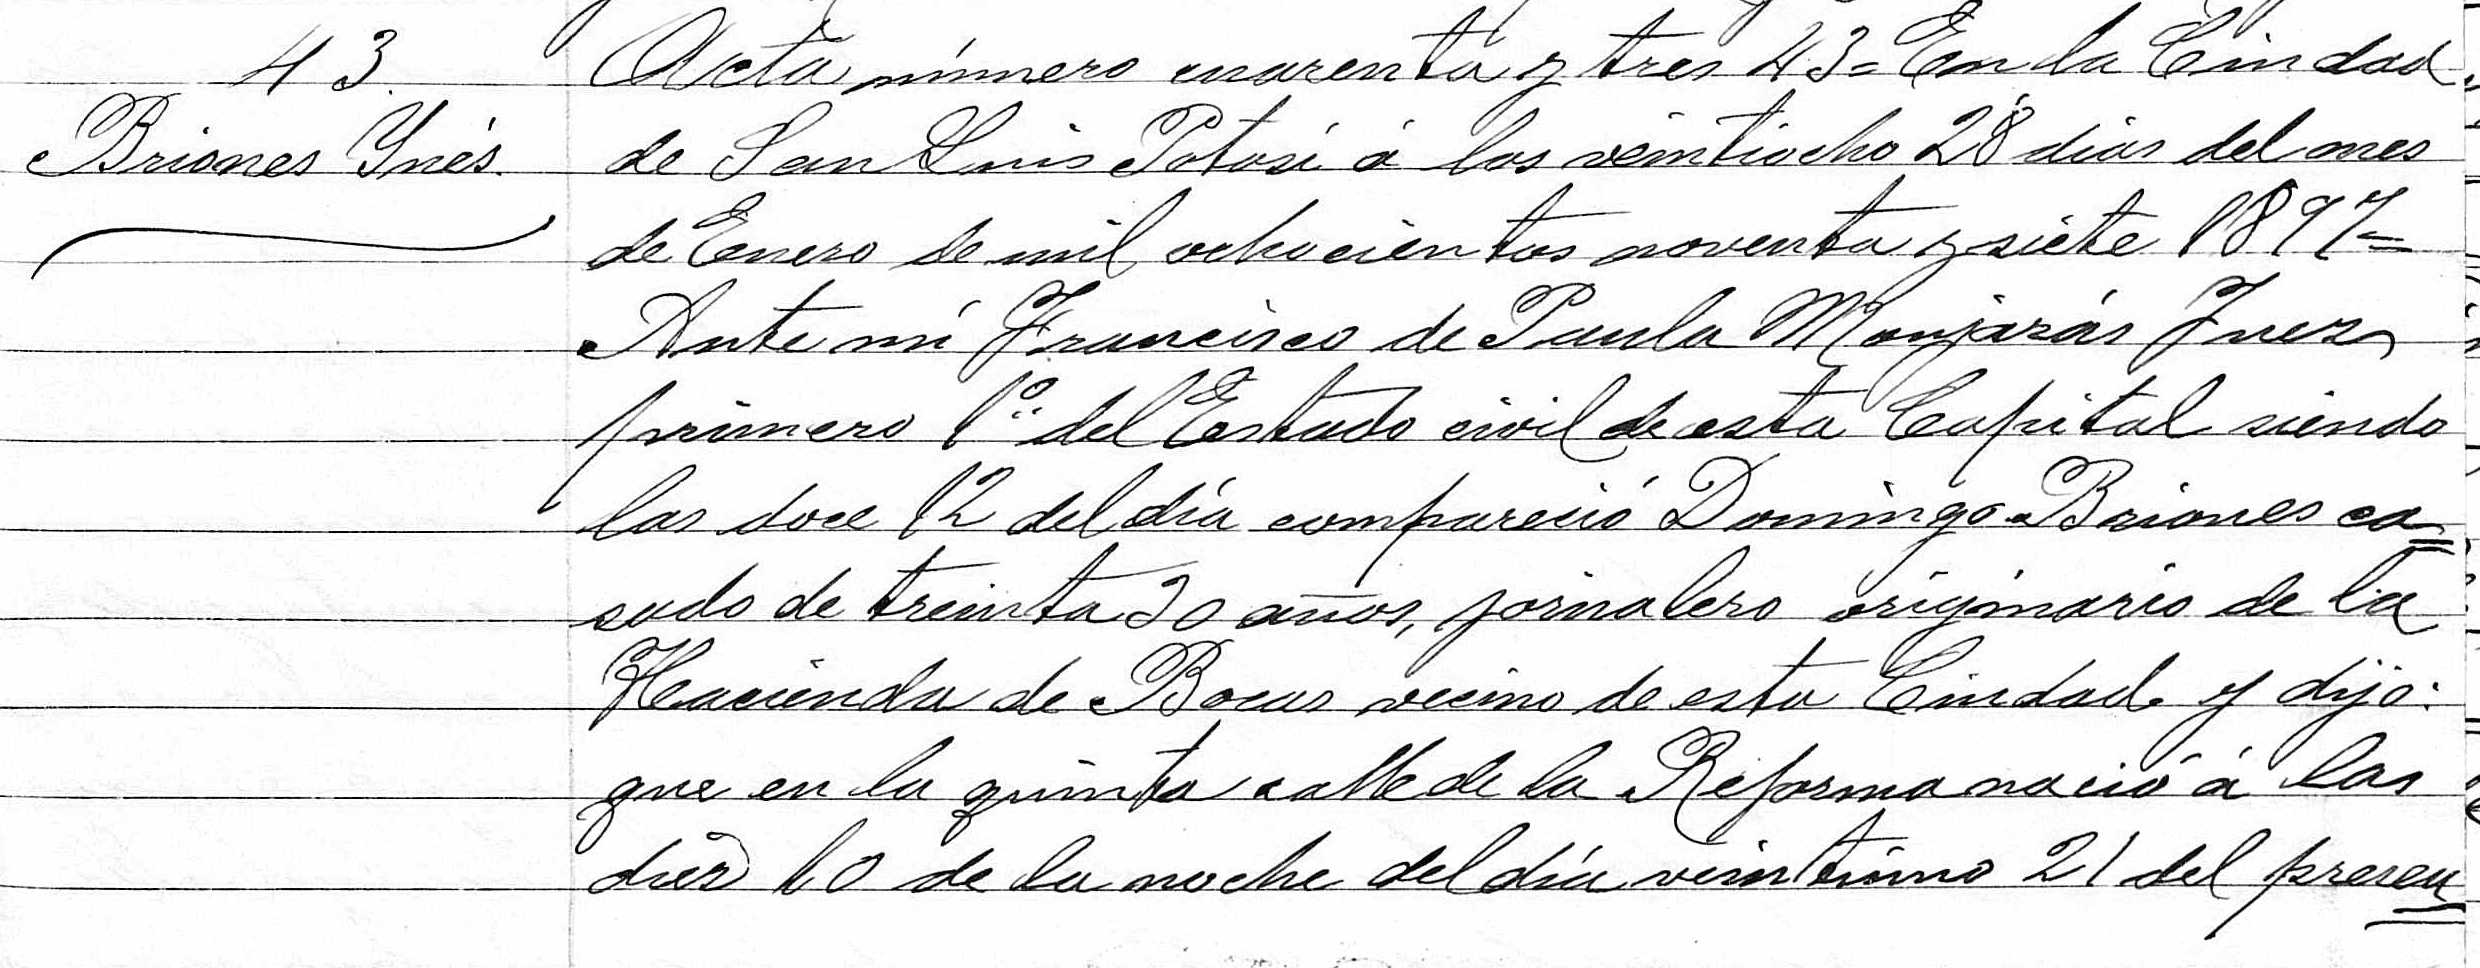 43.
Briones Ynés.
Acta número cuarenta y tres 43= En la Ciudad
de San Luis Potosí á los veintiocho 28 dias del mes
de Enero de mil ochocientos noventa y siete 1897=
Ante mí Francisco de Paula Monjarás Juez
primero 1º del Estado civil de esta Capital siendo
las doce 12 del día compareció Domingo Briones ca=
sado de treinta 30 años, jornalero originario de la
Hacienda de Bocas vecino de esta Ciudad y dijo:
que en la quinta calle de la Reforma nació á las
diez 10 de la noche del día veintiuno 21 del presen=